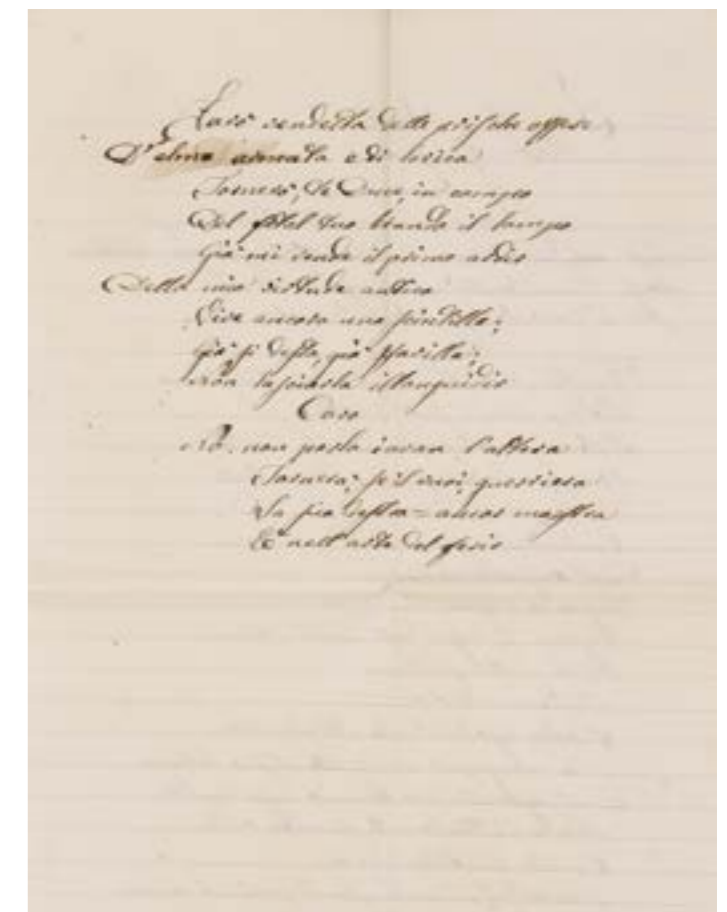 Farò vendetta delle prische offese
D'elmo armata e di lorica
Tornerò, te Duce, in campo
Del fatal tuo brando il lampo
Già mi rende il primo ardir
Della mia virtude antica
Vive ancora una scintilla;
Già si desta, già sfavilla;
Non lasciarla illanguidir
Coro
No. non parla invan l'altera
Tornerà, se il vuoi, guerriera
La sua destra = ancor maestra
È nell'arte del ferir